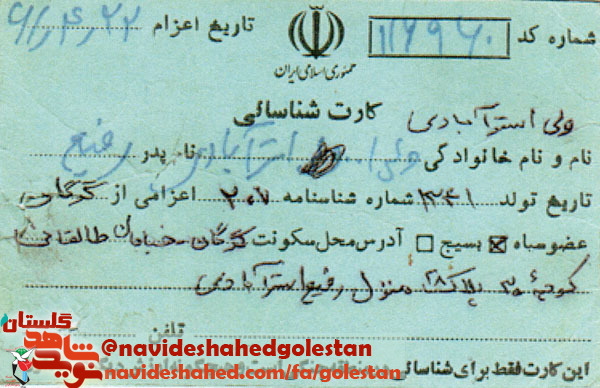 شماره کد ۱۱۶۹۶۰ تاریخ اعزام ۶۱/۴/۲۲
جمهوری اسلامی ایران
کارت شناسائی
ولی استرآبادی
نام و نام خانوادگی ولی استرآبادی نام پدر رفیع
تاریخ تولد ۱۳۴۱ شماره شناسنامه ۲۰۷ اعزامی از گرگان
عضو سپاه بسیج آدرس محل سکونت گرگان - خیابان طالقانی
کوچه ۳۰ پلاک ۲۸ منزل رفیع استرآبادی
تلفن
این کارت فقط برای شناسائی
گلستان
نوید شاهد
@navideshahedgolestan
navideshahed.com/fa/golestan